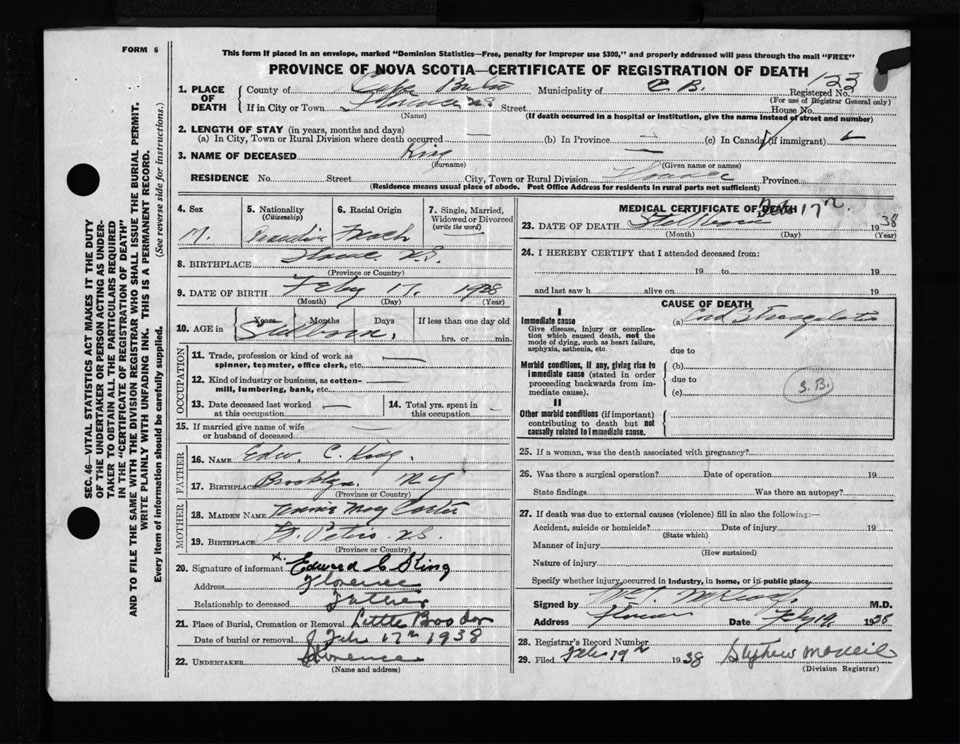 FORM 6
This form if placed in an envelope, marked "Dominion Statistics—Free, penalty for improper use $300," and properly addressed will pass through the mail "FREE"
PROVINCE OF NOVA SCOTIA—CERTIFICATE OF REGISTRATION OF DEATH
SEC. 46—VITAL STATISTICS ACT MAKES IT THE DUTY
OF THE UNDERTAKER OR PERSON ACTING AS UNDER-
TAKER TO OBTAIN ALL THE PARTICULARS REQUIRED
IN THE "CERTIFICATE OF REGISTRATION OF DEATH"
AND TO FILE THE SAME WITH THE DIVISION REGISTRAR WHO SHALL ISSUE THE BURIAL PERMIT.
WRITE PLAINLY WITH UNFADING INK. THIS IS A PERMANENT RECORD.
Every item of information should be carefully supplied. (See reverse side for instructions.)
1. PLACE OF DEATH
County of Cape Breton Municipality of C. B. Registered No. 123
(For use of Registrar General only)
If in City or Town Florence NS Street House No.
(Name) (If death occurred in a hospital or institution, give the name instead of street and number)
2. LENGTH OF STAY (in years, months and days)
(a) In City, Town or Rural Division where death occurred — (b) In Province — (c) In Canada (if immigrant)
3. NAME OF DECEASED King —
(Surname) (Given name or names)
RESIDENCE No. Street City, Town or Rural Division Florence Province
(Residence means usual place of abode. Post Office Address for residents in rural parts not sufficient)
4. Sex M.
5. Nationality (Citizenship) Canadian
6. Racial Origin French
7. Single, Married, Widowed or Divorced (write the word)
8. BIRTHPLACE NS.
(Province or Country)
9. DATE OF BIRTH Feby 17. 1938
(Month) (Day) (Year)
10. AGE in Years Months Days If less than one day old
Stillborn. hrs. or min.
OCCUPATION
11. Trade, profession or kind of work as spinner, teamster, office clerk, etc. —
12. Kind of industry or business, as cotton-mill, lumbering, bank, etc. —
13. Date deceased last worked at this occupation —
14. Total yrs. spent in this occupation —
15. If married give name of wife or husband of deceased
FATHER
16. NAME Edw. C. King.
17. BIRTHPLACE Brooklyn. NY
(Province or Country)
MOTHER
18. MAIDEN NAME May Carter
19. BIRTHPLACE St. Peters NS.
(Province or Country)
20. Signature of informant x. Edward C King
Address Florence
Relationship to deceased Father
21. Place of Burial, Cremation or Removal Little Bras dor
Date of burial or removal Feb 17th 1938
22. UNDERTAKER Florence
MEDICAL CERTIFICATE OF DEATH
23. DATE OF DEATH Stillborn Feb 17th. 1938
(Month) (Day) (Year)
24. I HEREBY CERTIFY that I attended deceased from:
19 to 19
and last saw h alive on 19
CAUSE OF DEATH
I
Immediate cause
Give disease, injury or complication which caused death, not the mode of dying, such as heart failure, asphyxia, asthenia, etc.
(a) Cord Strangulation
due to
Morbid conditions, if any, giving rise to immediate cause (stated in order proceeding backwards from immediate cause).
(b)
due to
(c)
S. B.
II
Other morbid conditions (if important) contributing to death but not causally related to immediate cause.
25. If a woman, was the death associated with pregnancy?
26. Was there a surgical operation? Date of operation 19
State findings Was there an autopsy?
27. If death was due to external causes (violence) fill in also the following:—
Accident, suicide or homicide? Date of injury 19
(State which)
Manner of injury
(How sustained)
Nature of injury
Specify whether injury occurred in industry, in home, or in public place
Signed by McLeod M.D.
Address Florence Date Feby 19 1938
28. Registrar's Record Number
29. Filed Feb 19th 1938 Stephen McNeil
(Division Registrar)